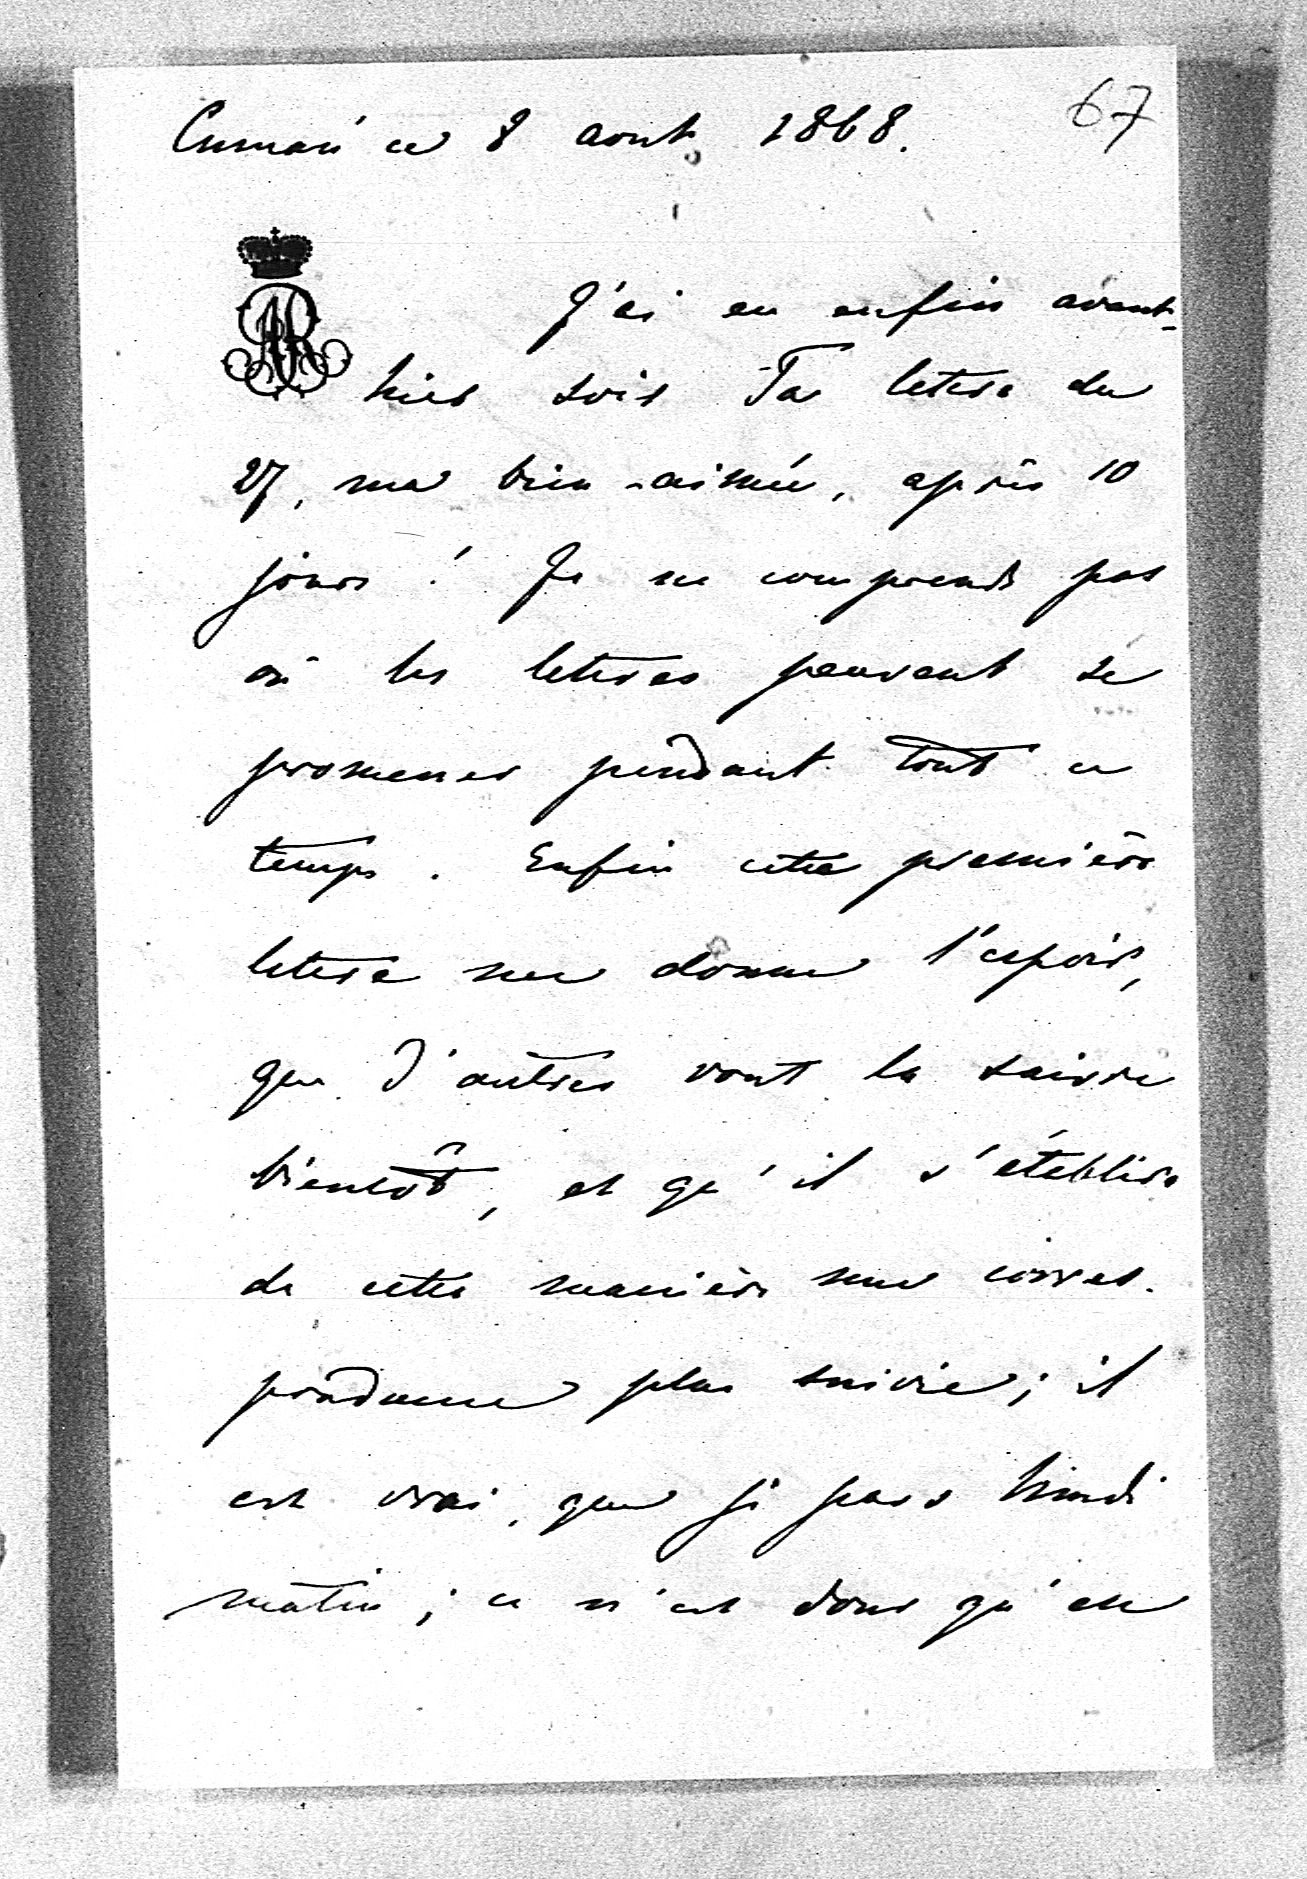 67
ce 8 août 1868.
J'ai eu enfin avant-
hier soir Ta lettre du
27, ma bien-aimée, après 10
jours ! Je ne comprends pas
où les lettres peuvent se
promener pendant tout ce
temps. Enfin cette première
lettre me donne l'espoir,
que d'autres vont la suivre
bientôt, et qu'il s'établira
de cette manière une corres-
pondance plus suivie ; il
est vrai, que je pars lundi
matin ; ce n'est donc qu'en